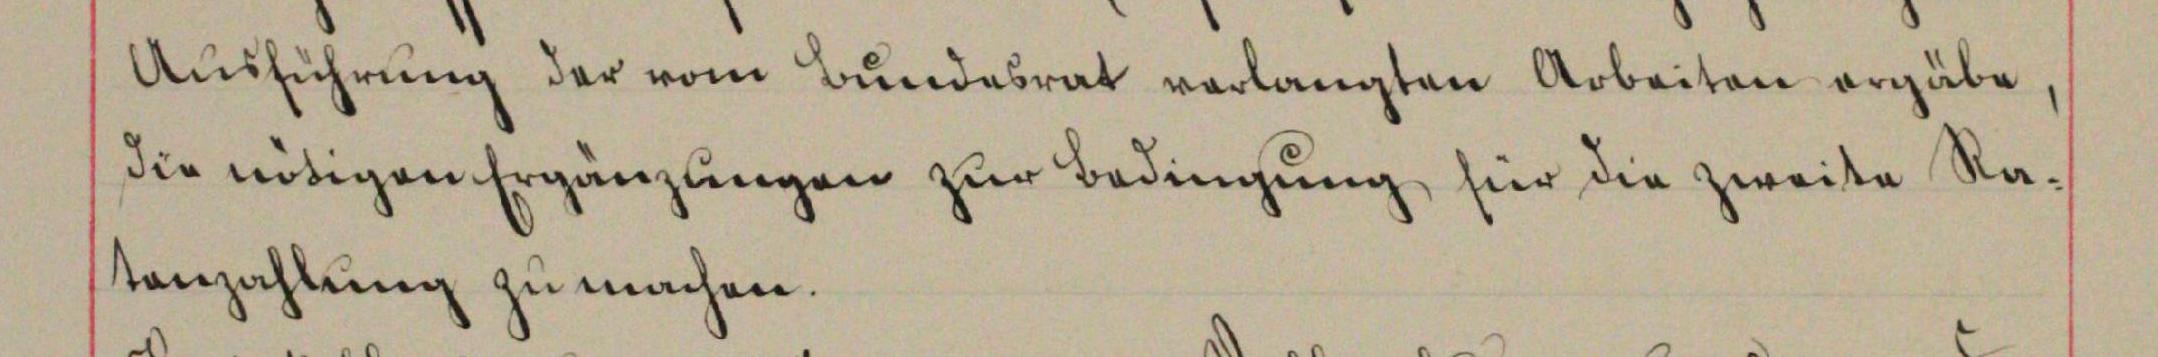 Ausführung der vom Bundesrat verlangten Arbeiten ergäbe,
die nötigen Ergänzungen zur Bedingung für die zweite Ra-
tenzahlung zu machen.